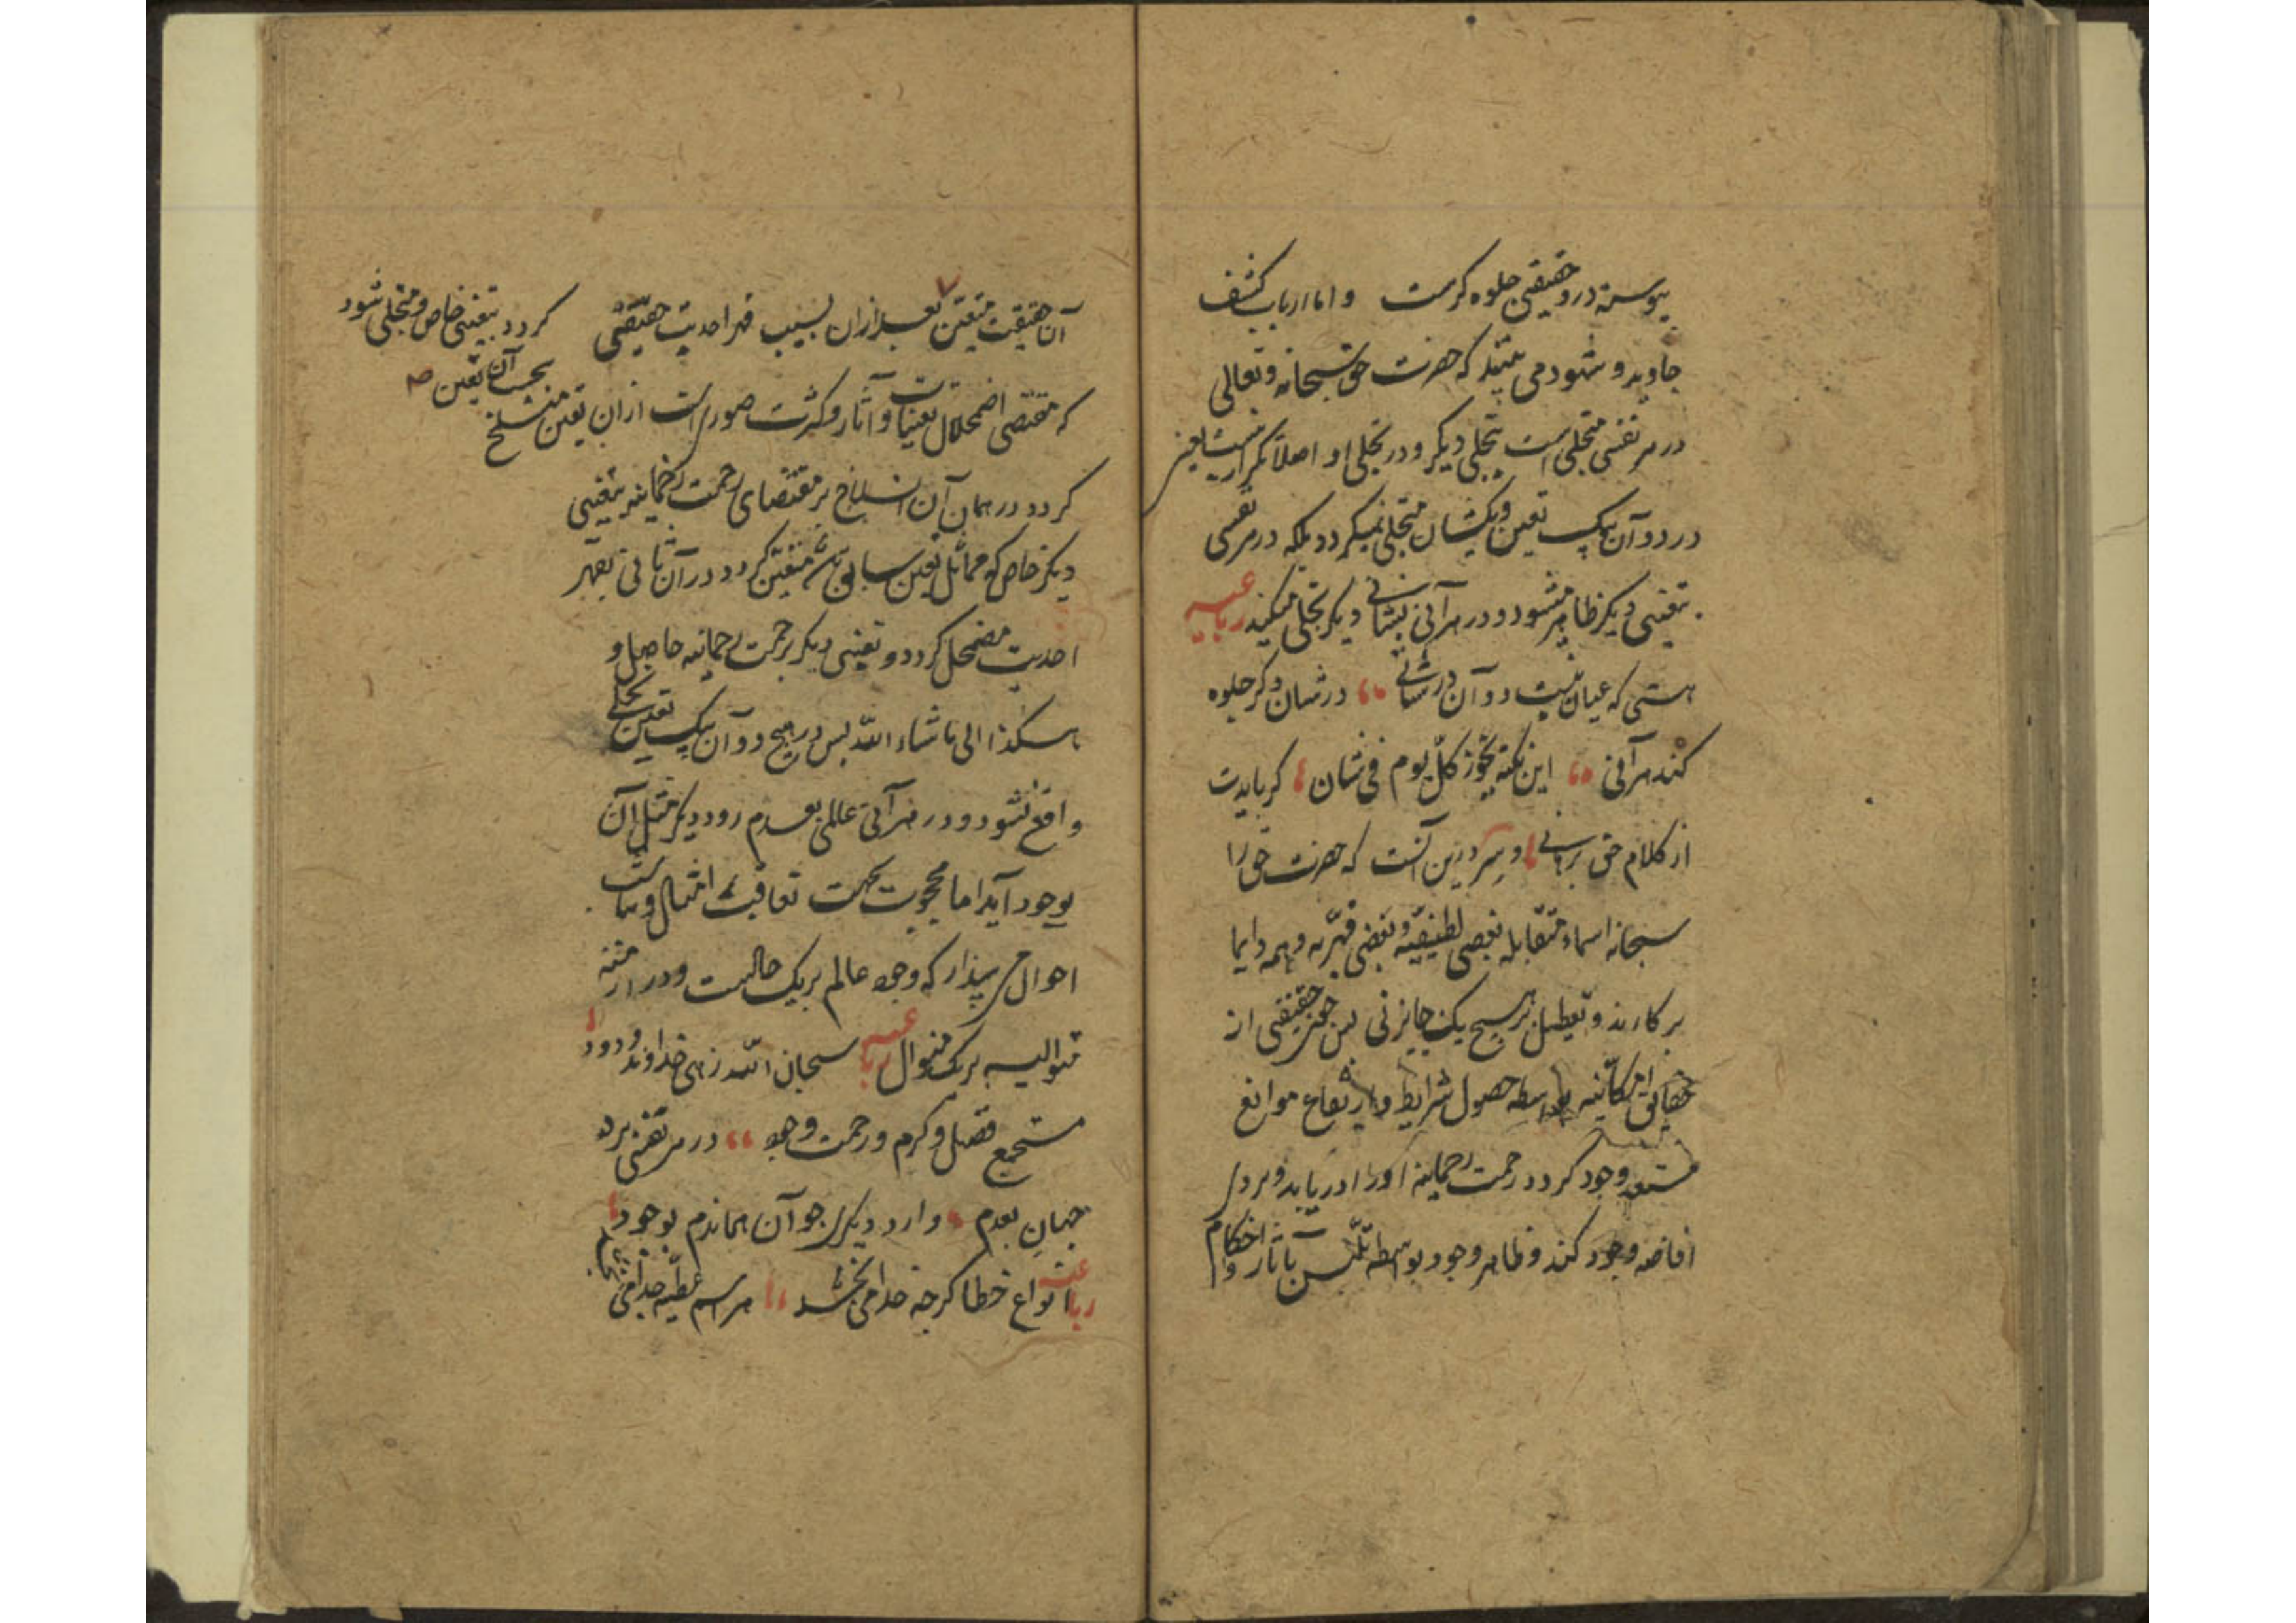 پیوسته درو حقیقتی جلوه‌گرست و اما ارباب کشف
جاوید و شهود می بینند که حضرت حق سبحانه و تعالی
در هر نفسی متجلی است بتجلی دیگر و در تجلی او اصلا تکرار نیست یعنی
در دو آن بیک تعین و یک شان متجلی نمیگردد بلکه در هر نفسی
بتعینی دیگر ظاهر میشود و در هر آنی بشانی دیگر تجلی میکند رباعیه
هستی که عیان نیست دو آن در شانی در شان دگر جلوه
کند هر آنی این نکته بجوز کل یوم فی شان گر بایدت
از کلام حق برهانی و سر درین آنست که حضرت حق را
سبحانه اسماء متقابله بعضی لطیفیه و بعضی قهریه و همه دایما
بر کارند و تعطیل بر هیچ یک جایز نی پس چون حقیقتی از
حقایق امکانیه بواسطه حصول شرایط و ارتفاع موانع
مستعد وجود گردد رحمت رحمانیه او را دریابد و بر وی
افاضه وجود کند و ظاهر وجود بواسطه تلبس بآثار و احکام
آن حقیقت متعین گردد بتعینی خاص و متجلی شود
بحسب آن تعین صح
بعد از ان بسبب قهر احدیت حقیقی
که مقتضی اضمحلال تعینات و آثار و کثرت صوری است از ان تعین منسلخ
گردد و در همان آن انسلاخ بر مقتضای رحمت رحمانیه بتعینی
دیگر خاص که مماثل تعین سابق باشد متعین گردد و در آن ثانی بقهر
احدیت مضمحل گردد و تعینی دیگر برحمت رحمانیه حاصل و
هکذا الی ماشاء الله پس در هیچ دو آن بیک تعین تجلی
واقع نشود و در هر آنی عالمی بعدم رود و دیگر مثل آن
بوجود آید اما محجوب بجهت تعاقب امثال و تناسب
احوال می پندارد که وجود عالم بر یک حالست و در ازمنه
متوالیه بر یک منوال رباعیه سبحان الله زهی خداوند ودود
مستجمع فضل و کرم و رحمت وجود در هر نفسی برد
جهان بعدم وارد دیگری چو آن هماندم بوجود
رباعیه انواع عطا گرچه خدا می بخشد هر اسم عطیه جدا می بخشد